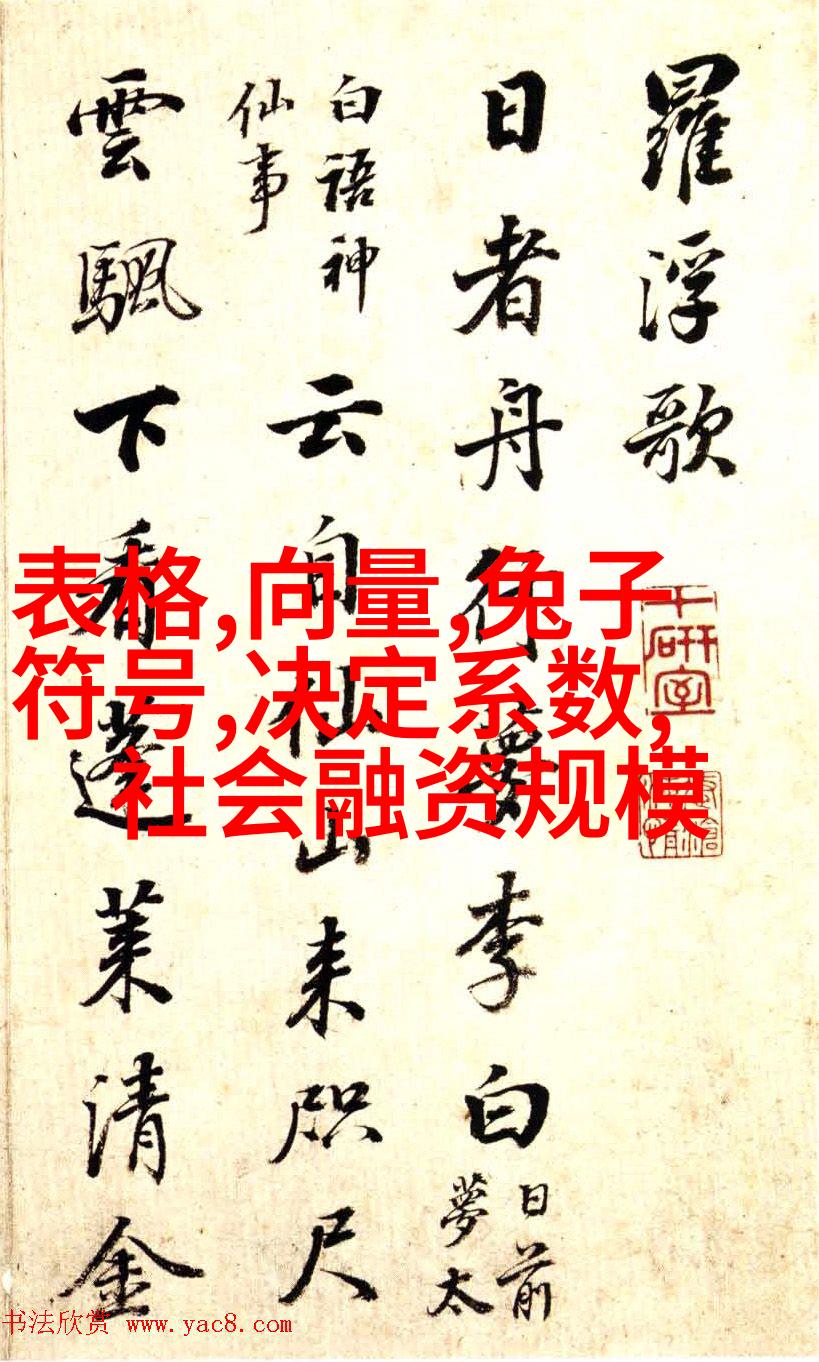 羅浮歌
日者舟行夢李白
日前
夢太
白語神
仙事
云自仙山来咫尺
雲颿下看蓬莱清金
表格,向量,兔子
符号,决定系数,
社会融资规模
书法欣赏 www.yac8.com